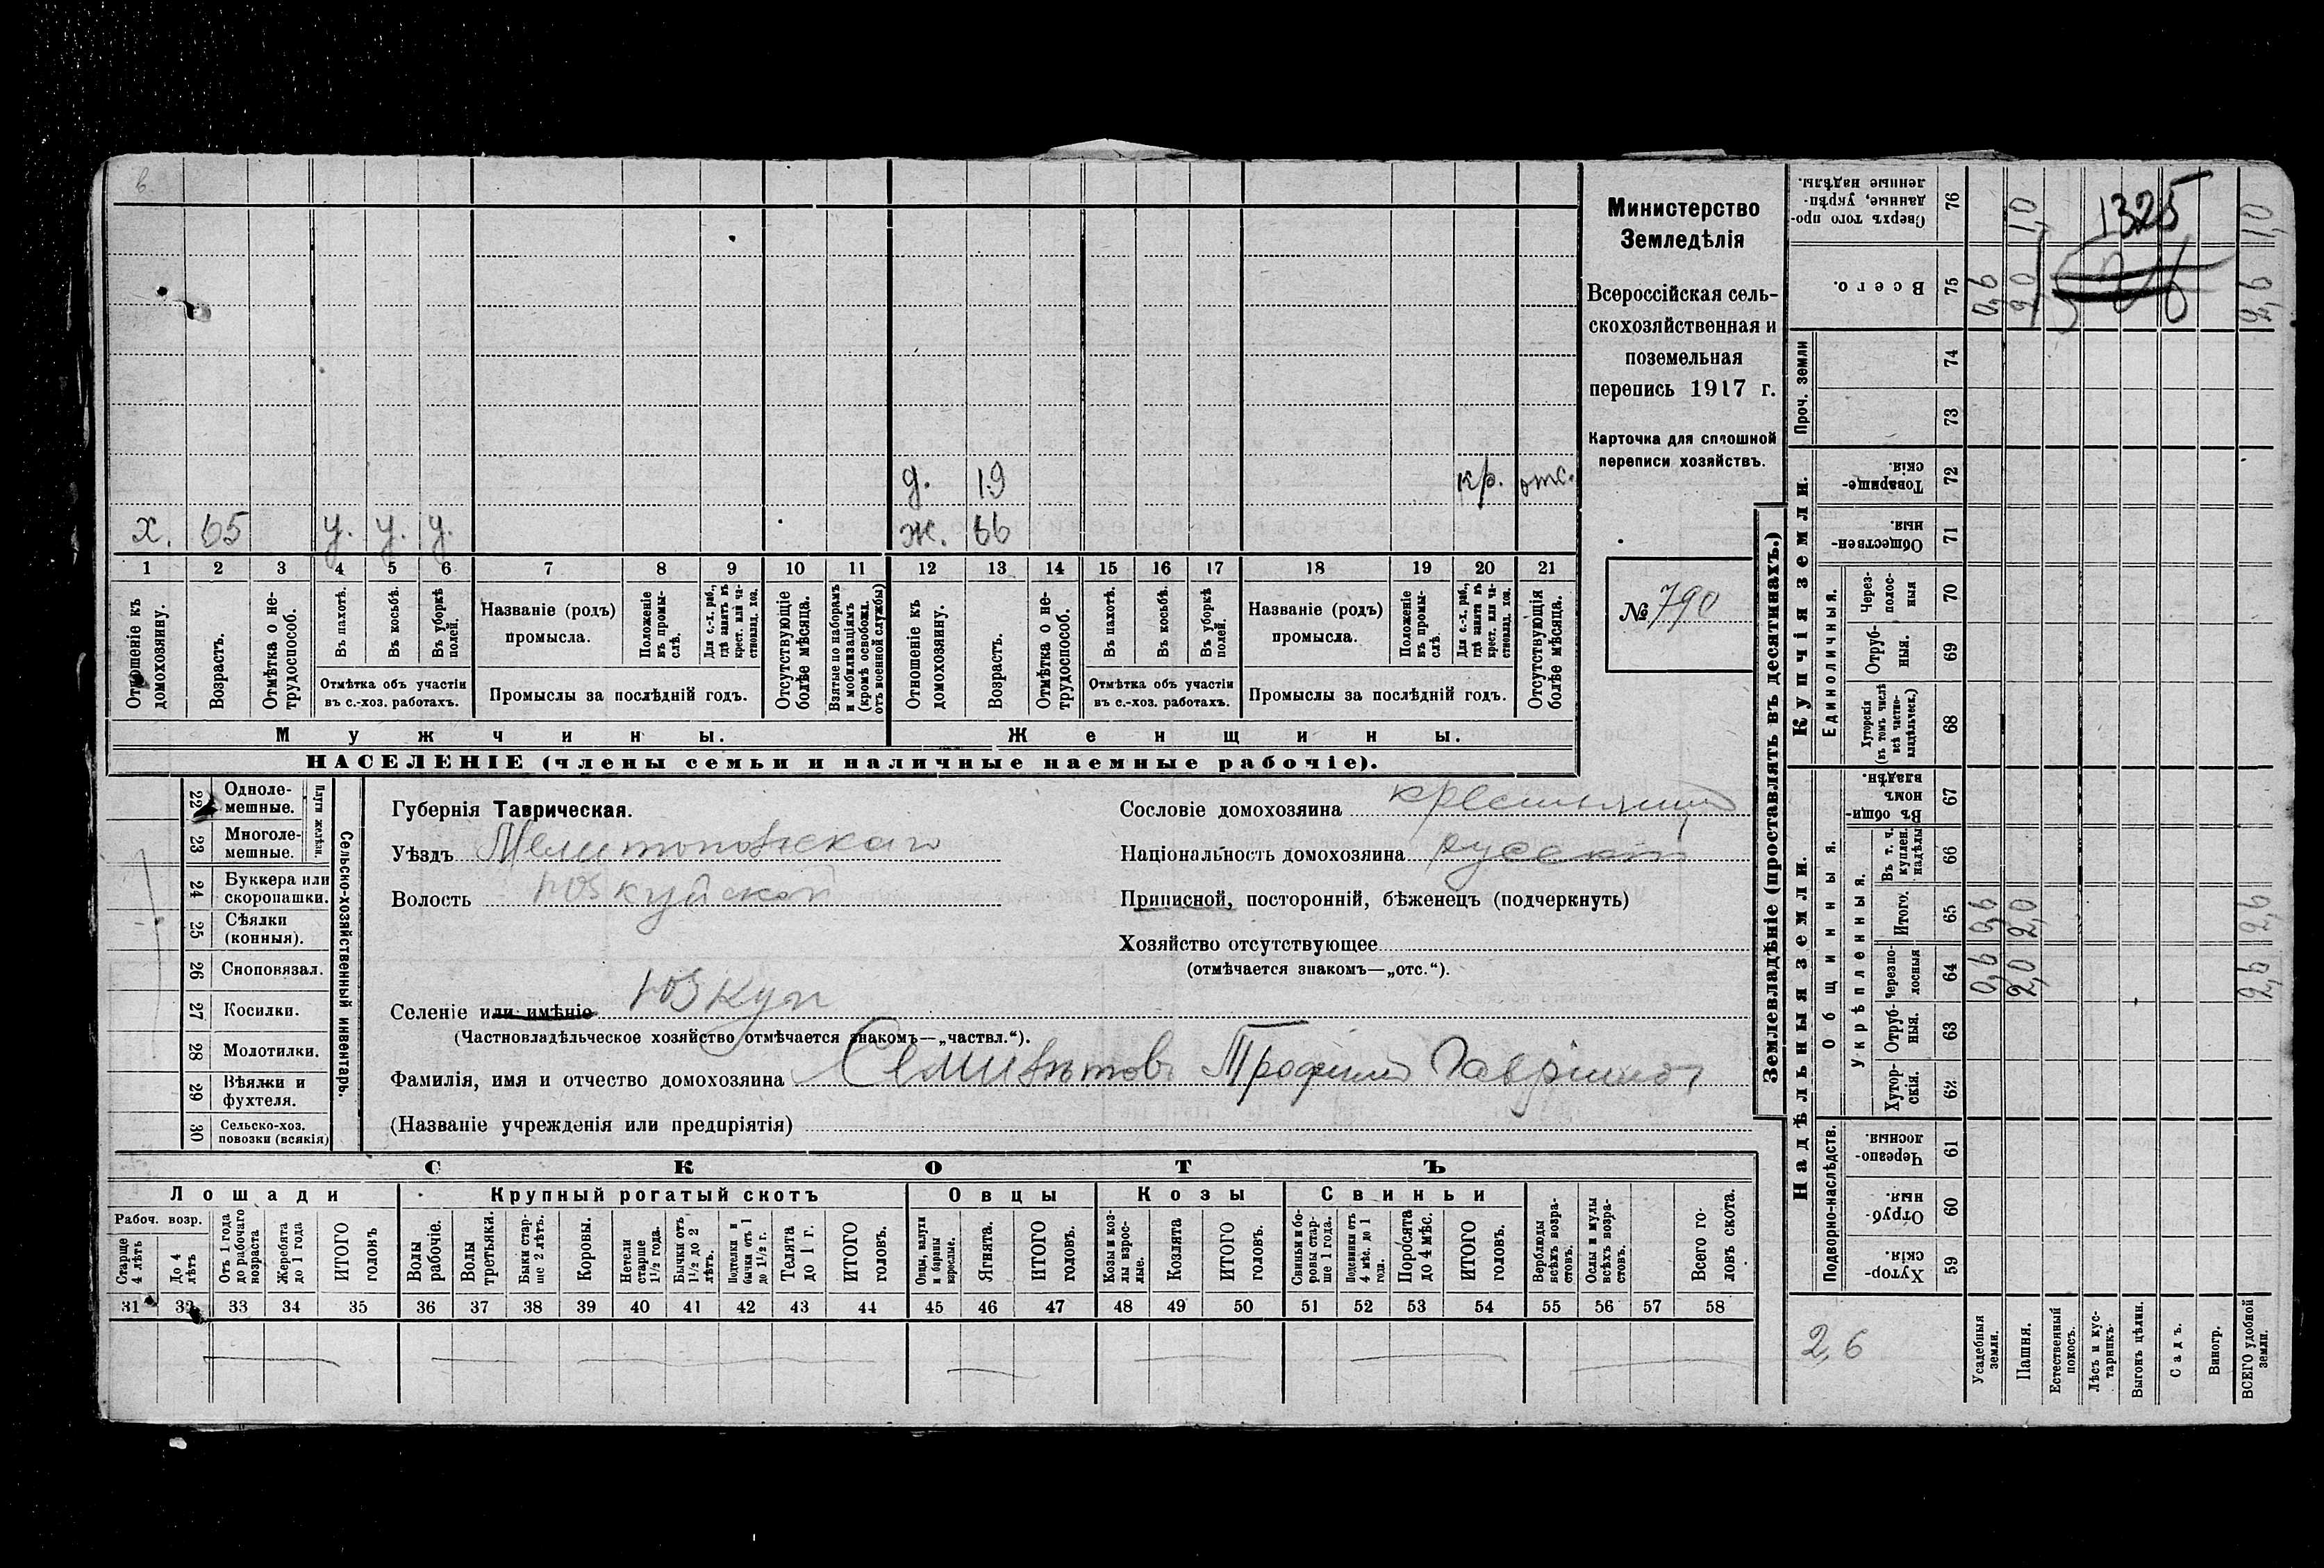 в.
д. 19 кр. отс.
х. 65 у. у. у. ж. 66
1 2 3 4 5 6 7 8 9 10 11 12 13 14 15 16 17 18 19 20 21
Отношеніе къ домохозяину.
Возрастъ.
Отмѣтка о не-
трудоспособ.
Въ пахотѣ.
Въ косьбѣ.
Въ уборкѣ
полей.
Отмѣтка объ участіи
въ с.-хоз. работахъ.
Названіе (родъ)
промысла.
Положеніе
въ промы-
слѣ.
Для с.-х. раб.,
гдѣ занятъ въ
крест. или ча-
стновлад. хоз.
Промыслы за послѣдній годъ.
Отсутствующіе
болѣе мѣсяца.
Взятые по наборамъ
и мобилизаціямъ
(кромѣ освобожд.
отъ военной службы)
Отношеніе къ
домохозяину.
Возрастъ.
Отмѣтка о не-
трудоспособ.
Въ пахотѣ.
Въ косьбѣ.
Въ уборкѣ
полей.
Отмѣтка объ участіи
въ с.-хоз. работахъ.
Названіе (родъ)
промысла.
Положеніе
въ промы-
слѣ.
Для с.-х. раб.,
гдѣ занята въ
крест. или ча-
стновлад. хоз.
Промыслы за послѣдній годъ.
Отсутствующія
болѣе мѣсяца.
Мужчины. Женщины.
НАСЕЛЕНІЕ (члены семьи и наличные наемные рабочіе).
Министерство
Земледѣлія
Всероссійская сель-
скохозяйственная и
поземельная
перепись 1917 г.
Карточка для сплошной
переписи хозяйствъ.
№ 790
Сельско-хозяйственный инвентарь.
Плуги желѣзн.
22 Одноле-
мешные.
23 Многоле-
мешные.
24 Буккера или
скоропашки.
25 Сѣялки
(конныя).
26 Сноповязал.
27 Косилки.
28 Молотилки.
29 Вѣялки и
фухтеля.
30 Сельско-хоз.
повозки (всякія)
Губернія Таврическая.
Уѣздъ Мелитопольскаго
Волость Юзкуйской
Селеніе или имѣніе Юзкуи
(Частновладѣльческое хозяйство отмѣчается знакомъ—„частвл.“).
Фамилія, имя и отчество домохозяина Трофимъ
(Названіе учрежденія или предпріятія)
Сословіе домохозяина крестьянинъ
Національность домохозяина русскій
Приписной, посторонній, бѣженецъ (подчеркнуть)
Хозяйство отсутствующее
(отмѣчается знакомъ—„отс.“).
СКОТЪ
Лошади Крупный рогатый скотъ Овцы Козы Свиньи
Рабоч. возр.
Старше
4 лѣтъ
До 4
лѣтъ
Отъ 1 года
до рабочаго
возраста
Жеребята
до 1 года
ИТОГО
головъ
Волы
рабочіе.
Волы
третьяки.
Быки стар-
ше 2 лѣтъ.
Коровы.
Нетели
старше
1½ года.
Бычки отъ
1½ до 2
лѣтъ.
Подтелки и
бычки отъ 1
до 1½ г.
Телята
до 1 г.
ИТОГО
головъ.
Овцы, валухи
и бараны
взрослые.
Ягнята.
ИТОГО
головъ.
Козы и коз-
лы взрос-
лые.
Козлята
ИТОГО
головъ.
Свиньи и бо-
ровы стар-
ше 1 года.
Подсвинки отъ
4 мѣс. до 1
года.
Поросята
до 4 мѣс.
ИТОГО
головъ.
Верблюды
всѣхъ возра-
стовъ.
Ослы и мулы
всѣхъ возра-
стовъ.
Всего го-
ловъ скота.
31 32 33 34 35 36 37 38 39 40 41 42 43 44 45 46 47 48 49 50 51 52 53 54 55 56 57 58
Землевладѣніе (проставлять въ десятинахъ.)
Сверхъ того про-
данные, укрѣп-
ленные надѣлы.
76 1,0 1325 1,0
Всего.
75 0,6 2,0 2,6
Проч. земли
74
73
Купчія земли.
Товарище-
скія.
72
Обществен-
ныя.
71
Единоличныя.
Через-
полос-
ныя
70
Отруб-
ныя.
69
Хуторскія
(въ томъ числѣ
всѣ частно-
владѣльческ.)
68
Надѣльныя земли.
Общинныя.
Въ общин-
номъ
владѣн.
67
Укрѣпленныя.
Въ т. ч.
куплен.
надѣлы
66
Итого.
65 0,6 2,0 2,6
Черезпо-
лосныя
64 0,6 2,0 2,6
Отруб-
ныя.
63
Хутор-
скія.
62
Подворно-наслѣдств.
Черезпо-
лосныя.
61
Отруб-
ныя.
60
Хутор-
скія.
59
2,6
Усадебныя
земли.
Пашня.
Естественный
покосъ.
Лѣсъ и кус-
тарникъ.
Выгонъ цѣлин.
Садъ.
Виногр.
ВСЕГО удобной
земли.